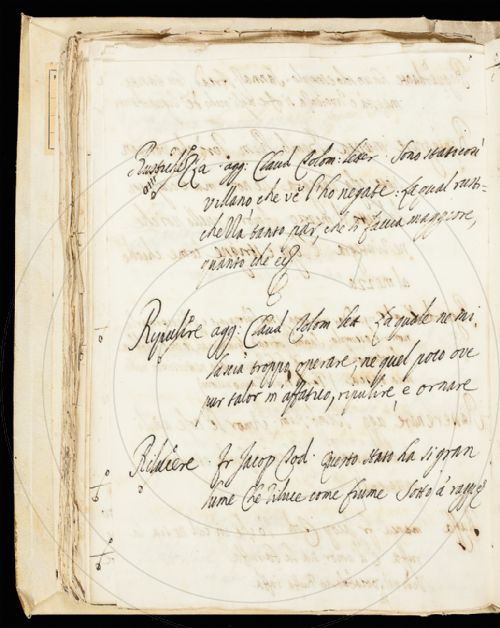 agg: Claud Tolom: leter. Sono stato così
villano che ve l'ho negate. La qual rusti=
chezza tanto par, che si faccia maggiore,
quanto che
Ripulire agg: Claud Tolom let. La quale ne mi
lascia troppo operare, ne quel poco ove
pur talor m'affatico, ripulire, e ornare
Rilucere. Fr Jacop Tod. Questo stato ha si gran
lume Che riluce come fiume Sotto a'